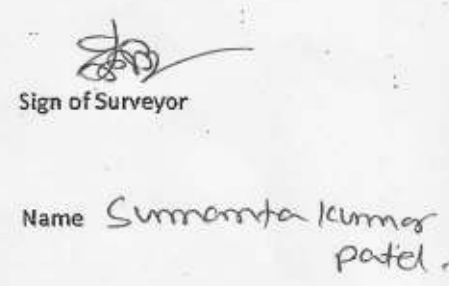 Sign of Surveyor
Name Sumanta Kumar
Patel.